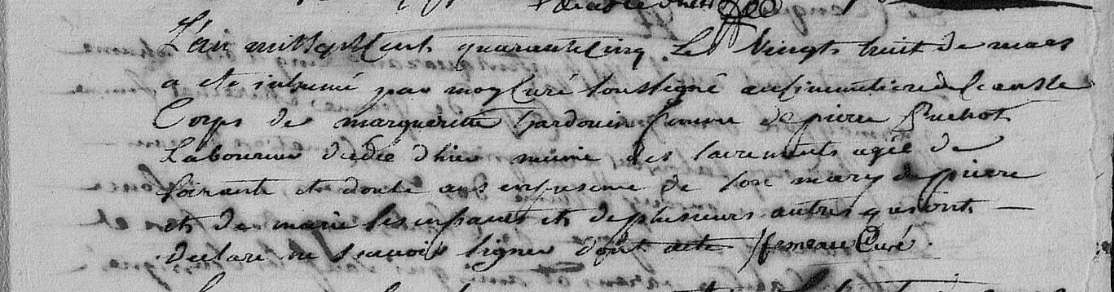 L'an mil sept cent quarante cinq Le vingt huit de mars
a ete inhumé par moy Curé soussigné au cimmetiere de ceans le
Corps de margueritte hardouin femme de pierre Buchot
Laboureur decedée d'hier munie des sacrements agée de
soixante et douze ans en presence de son mary de pierre
et de marie ses enfants et de plusieurs autres qui ont
declaré ne scavoir signer dont acte Curé